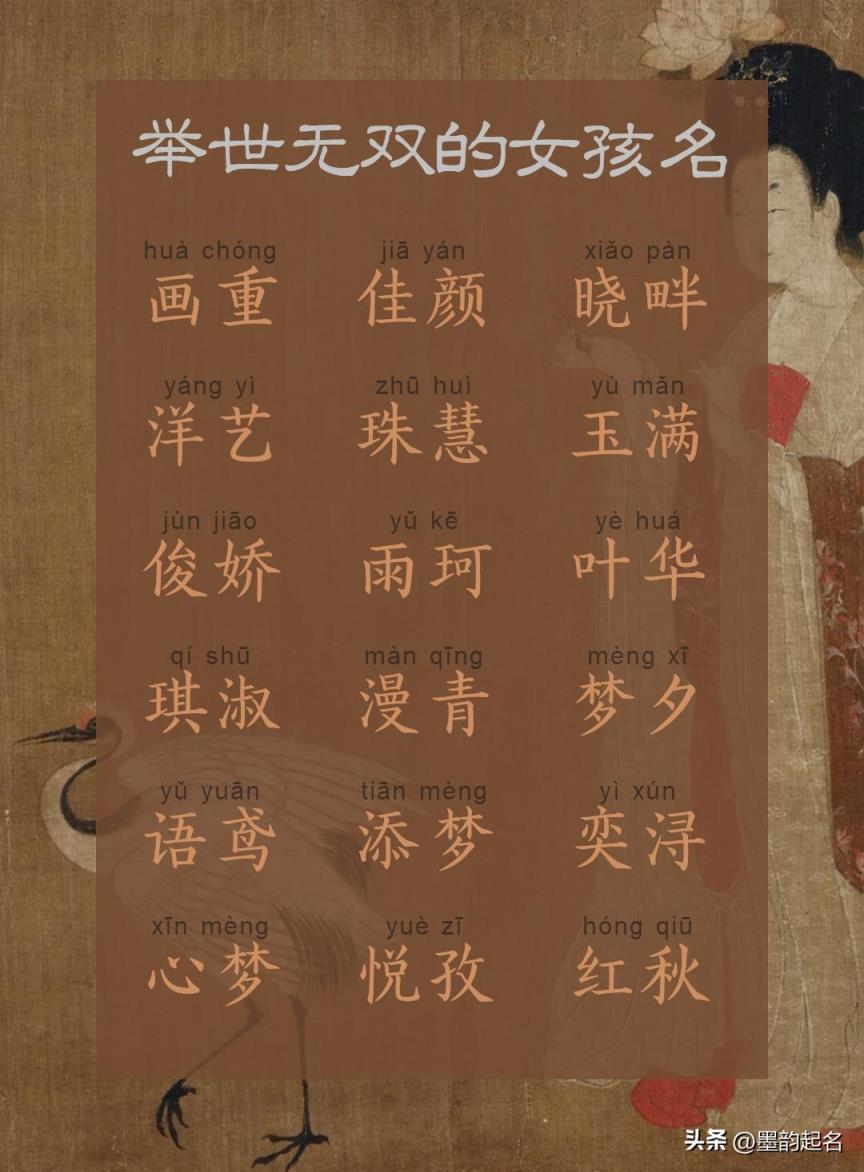 举世无双的女孩名
huà chóng jiā yán xiǎo pàn
画重 佳颜 晓畔
yáng yì zhū huì yù mǎn
洋艺 珠慧 玉满
jùn jiāo yǔ kē yè huá
俊娇 雨珂 叶华
qí shū màn qīng mèng xī
琪淑 漫青 梦夕
yǔ yuān tiān mèng yì xún
语鸢 添梦 奕浔
xīn mèng yuè zī hóng qiū
心梦 悦孜 红秋
头条 @墨韵起名